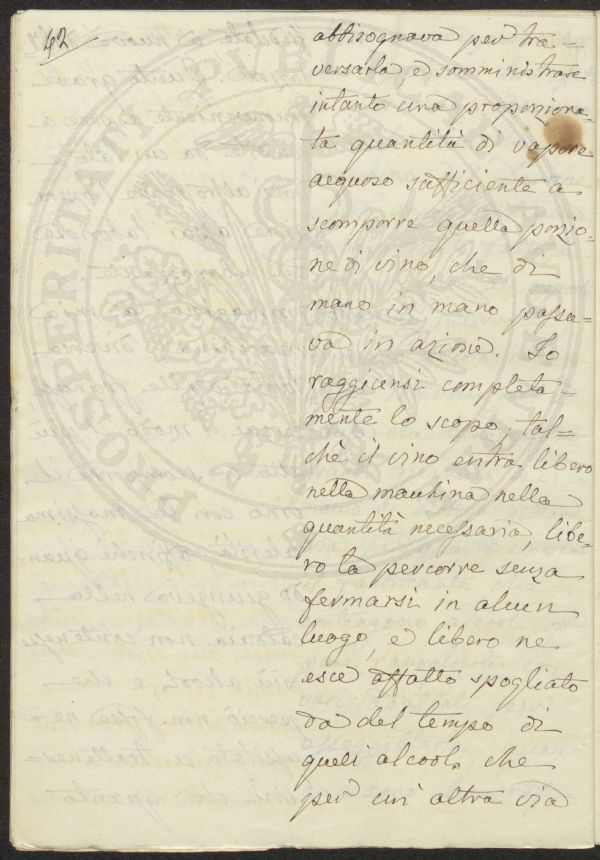 42
abbisognava per tra=
versarla, e somministrare
intanto una proporziona=
ta quantità di vapore
acquoso sufficiente a
scomporre quella porzio=
ne di vino, che di
mano in mano passa=
va in azione. Io
raggiunsi completa=
mente lo scopo; tal=
chè il vino entra libero
nella macchina nella
quantità necessaria, libe=
ro la percorre senza
fermarsi in alcun
luogo, e libero ne
esce affatto spogliato
da del tempo di
quell alcool, che
per un altra via
PROSPERITATI PVB